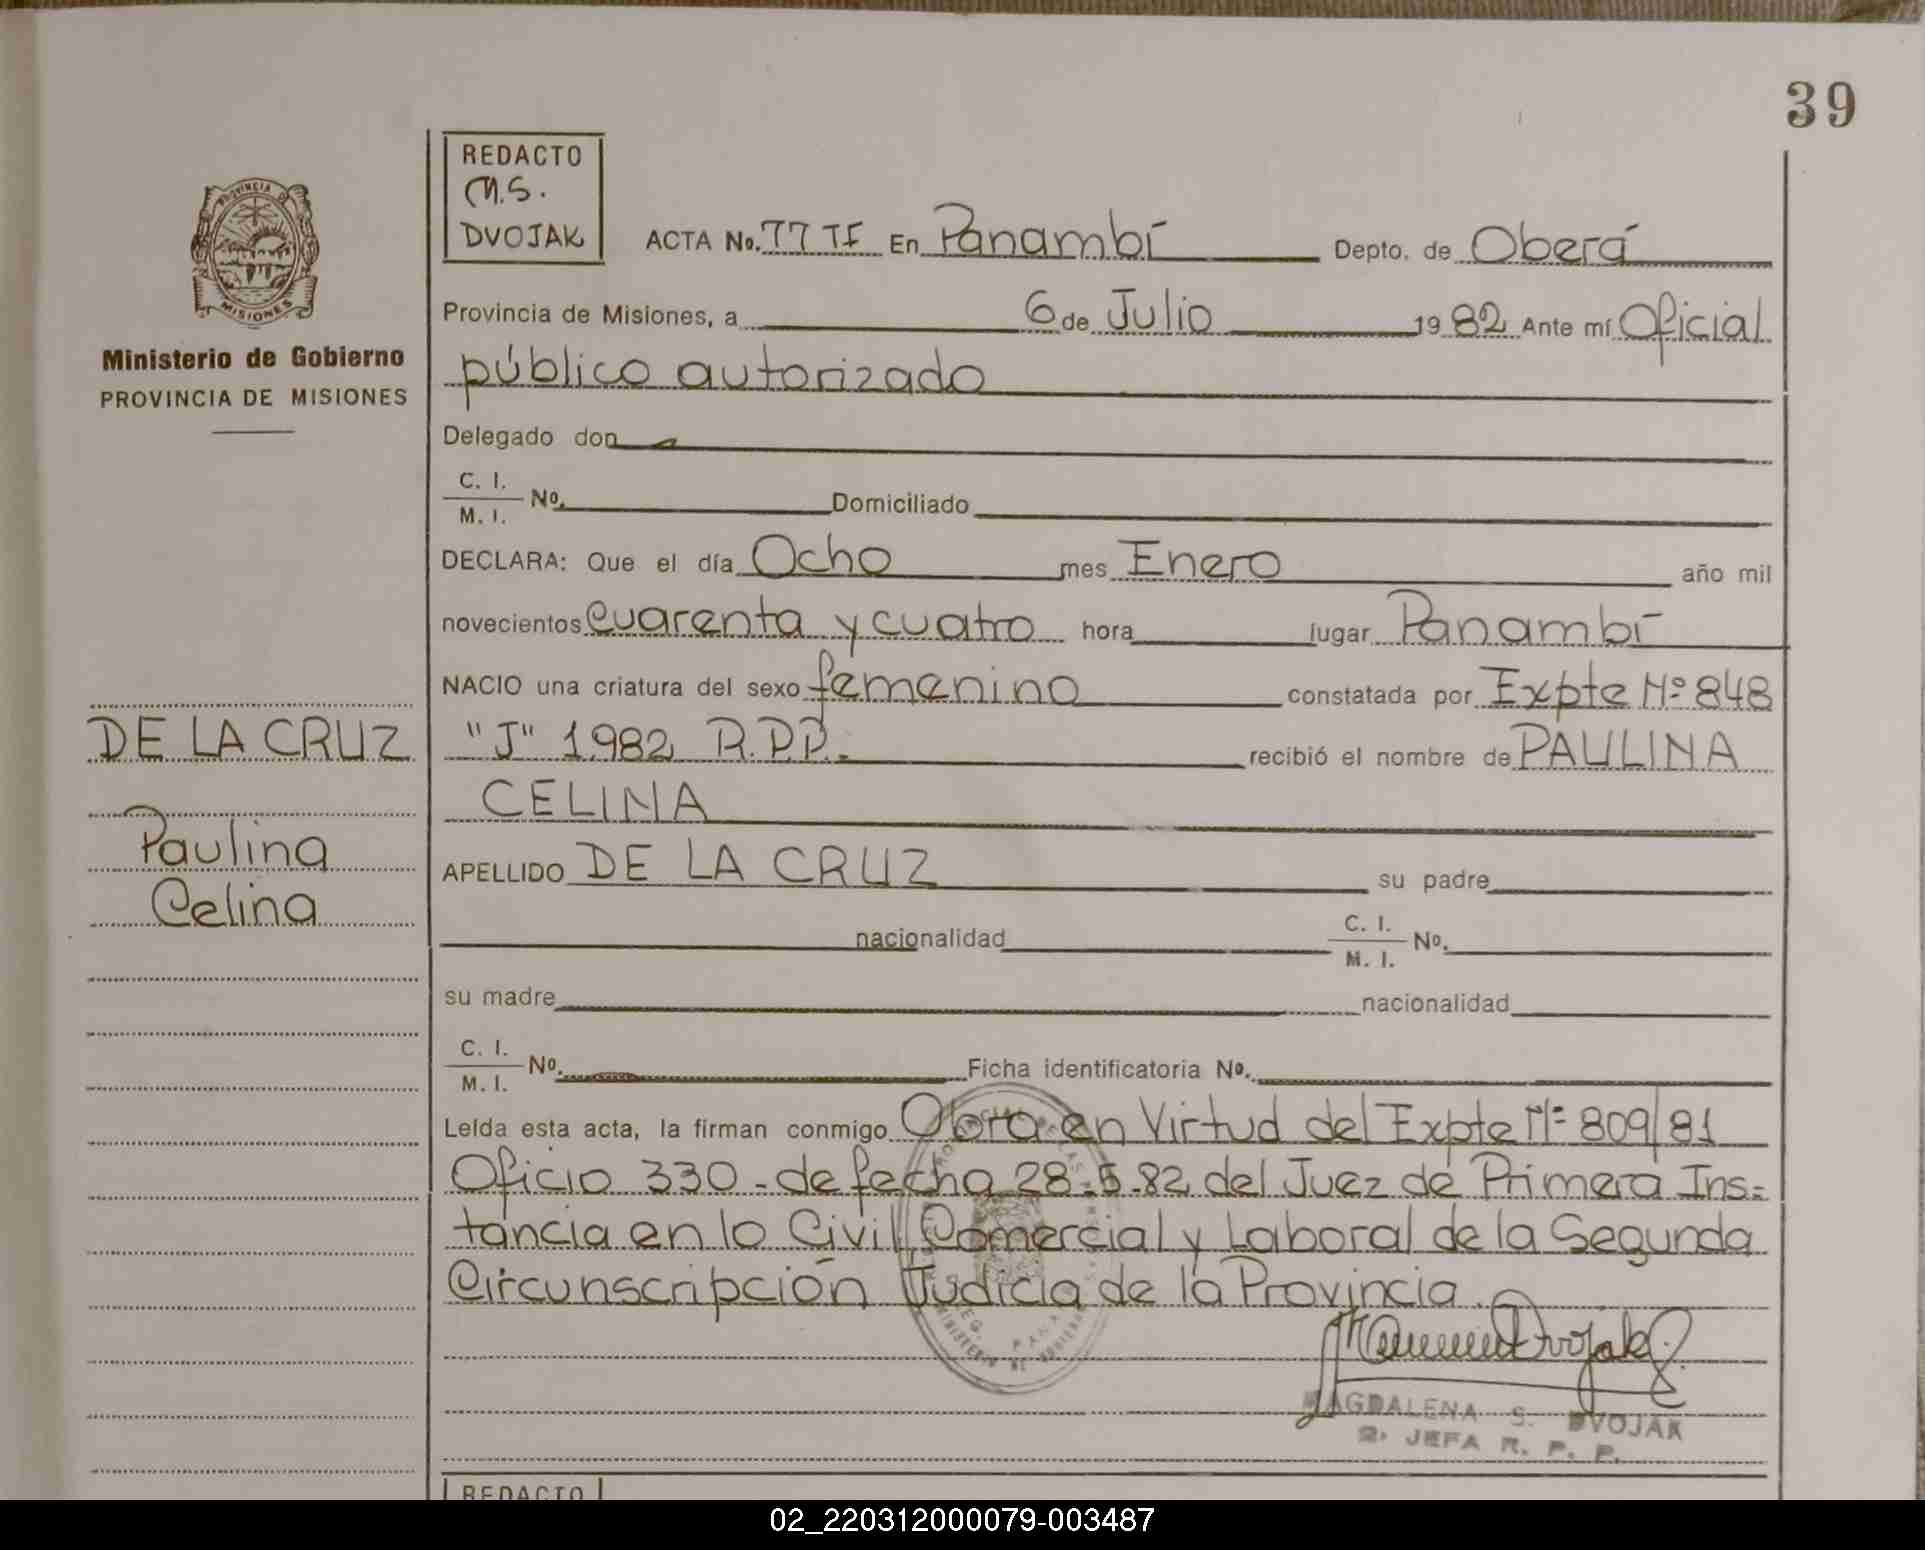 39
REDACTO
M.S.
DVOJAK
ACTA No. 77 TI En Panambí Depto. de Oberá
PROVINCIA DE
MISIONES
Provincia de Misiones, a 6 de Julio 1982 Ante mí Oficial
Ministerio de Gobierno
PROVINCIA DE MISIONES
público autorizado
Delegado don
C. I.
M. I. No. Domiciliado
DECLARA: Que el día Ocho mes Enero año mil
novecientos cuarenta y cuatro hora lugar Panambí
NACIO una criatura del sexo femenino constatada por Expte Nº 848
DE LA CRUZ
"J" 1982 R.P.P. recibió el nombre de PAULINA
CELINA
Paulina
Celina
APELLIDO DE LA CRUZ su padre
nacionalidad C. I.
M. I. No.
su madre nacionalidad
C. I.
M. I. No. Ficha identificatoria No.
Leída esta acta, la firman conmigo Obra en Virtud del Expte Nº 809/81
Oficio 330 - de fecha 28-5-82 del Juez de Primera Ins=
tancia en lo Civil, Comercial y Laboral de la Segunda
Circunscripción Judicia de la Provincia.
MINISTERIO DE GOBIERNO
Dvojak
MAGDALENA S. DVOJAK
2º JEFA R. P. P.
REDACTO
02_220312000079-003487